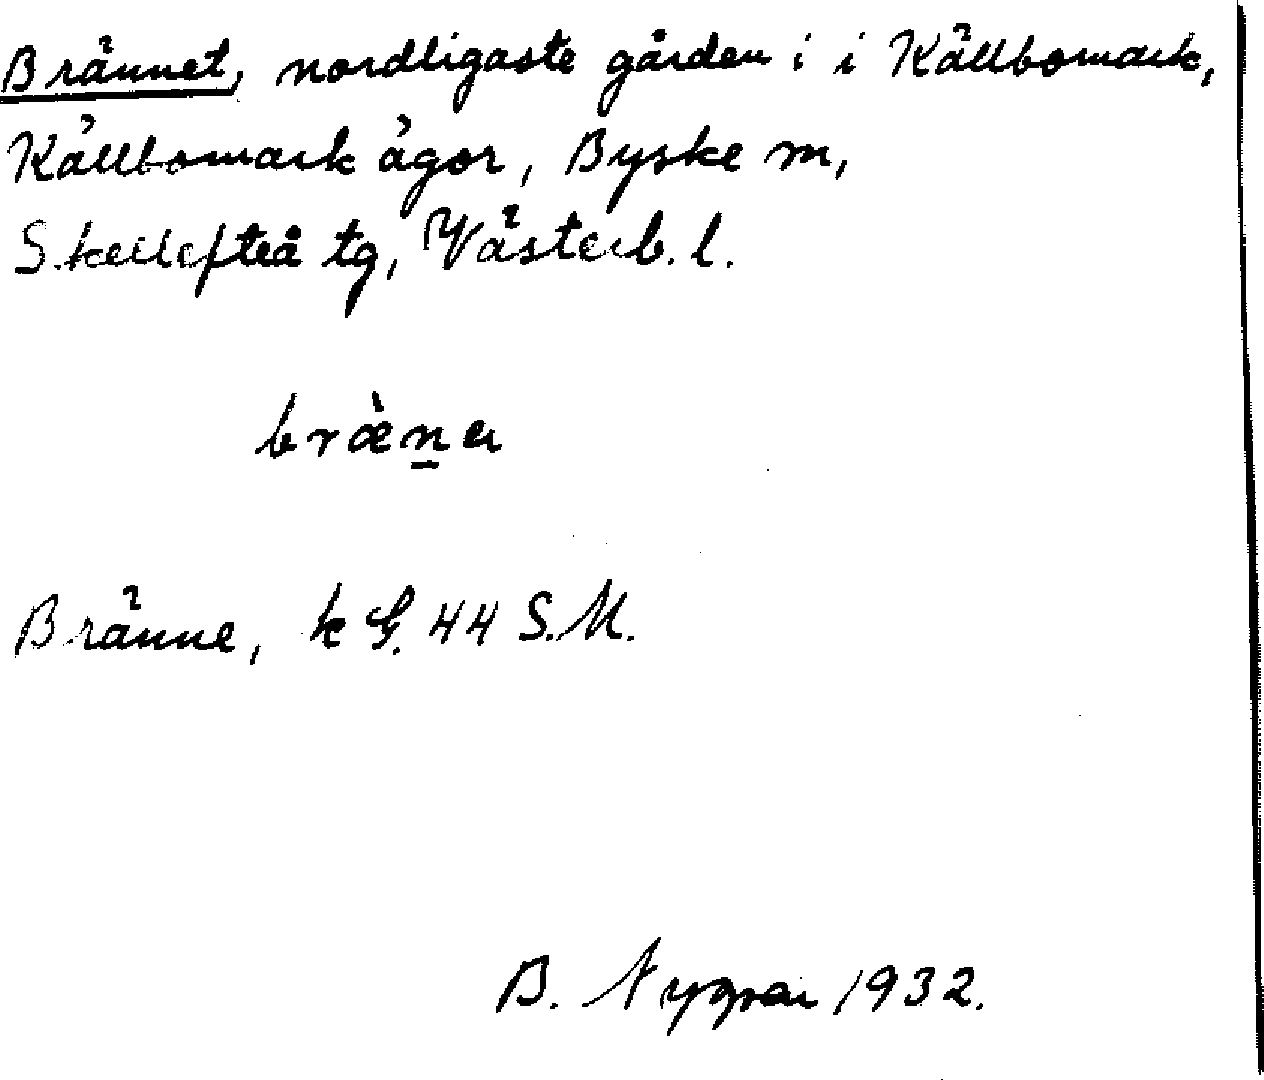 Brännet, nordligaste gården i i Källbomark,
Källbomark ägor, Byske sn,
Skellefteå tg, Västerb. l.
bræ̀n̲a
Bränne, k G. 44 S.M.
B. Nygren 1932.